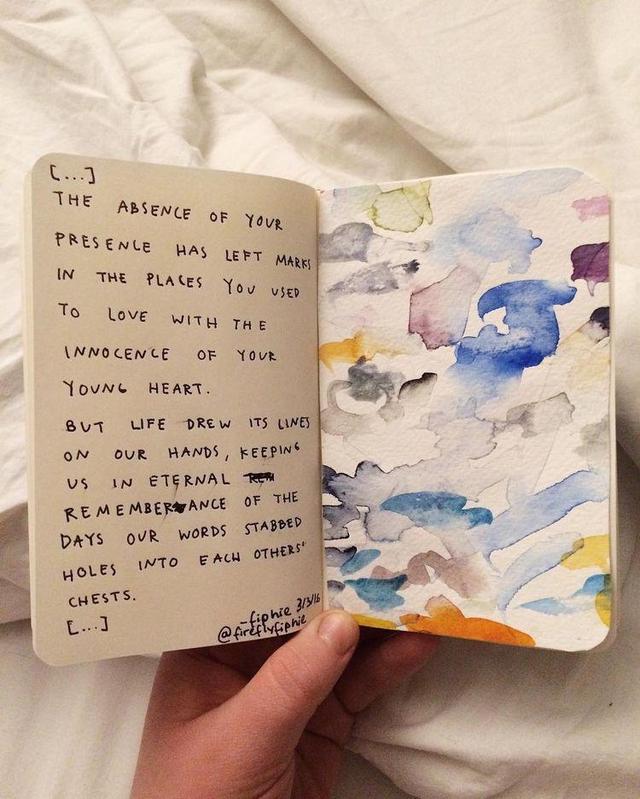 [...]
THE ABSENCE OF YOUR
PRESENCE HAS LEFT MARKS
IN THE PLACES YOU USED
TO LOVE WITH THE
INNOCENCE OF YOUR
YOUNG HEART.
BUT LIFE DREW ITS LINES
ON OUR HANDS, KEEPING
US IN ETERNAL
REMEMBERANCE OF THE
DAYS OUR WORDS STABBED
HOLES INTO EACH OTHERS'
CHESTS.
[...]
-fiphie 3/3/16
@fireflyfiphie